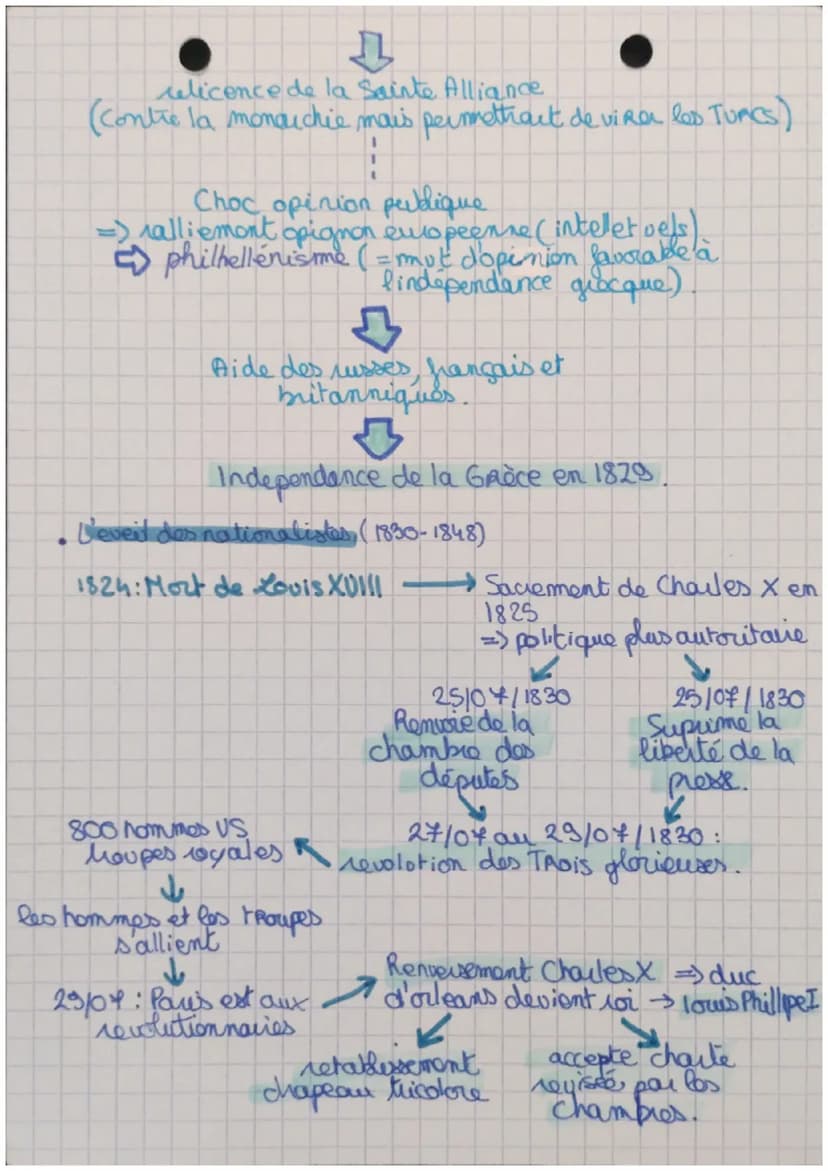 relicence de la Sainte Alliance
(Contre la monarchie mais permettrait de viRer les TURCS)
Choc opinion publique
=> ralliemont opignon europeenne (intellet uels)
⇨ philhellénisme (= mvt d'opinion favorable à
l'indépendance grecque).
Aide des russes, français et
britanniques.
Independance de la GRèce en 1829.
• L'eveil des nationalistes, (1830-1848)
1824: Mort de Louis XVIII → Sacrement de Charles X en
1825
=> politique plus autoritaire
25/07/1830
Renvoie de la
chambre des
députés
25/07/1830
Suprime la
liberté de la
press.
27/07 au 29/07/1830 :
revolotion des TRois glorieuses.
800 hommes VS
troupes royales
les hommes et les tRoupes
s'allient
29/07 : Paris est aux
revolutionnaries
Renversement Charles X => duc
d'orleans devient roi → Louis Phillipe I
retablissement
chapeau tricolore
accepte charte
revisée par les
chambres.